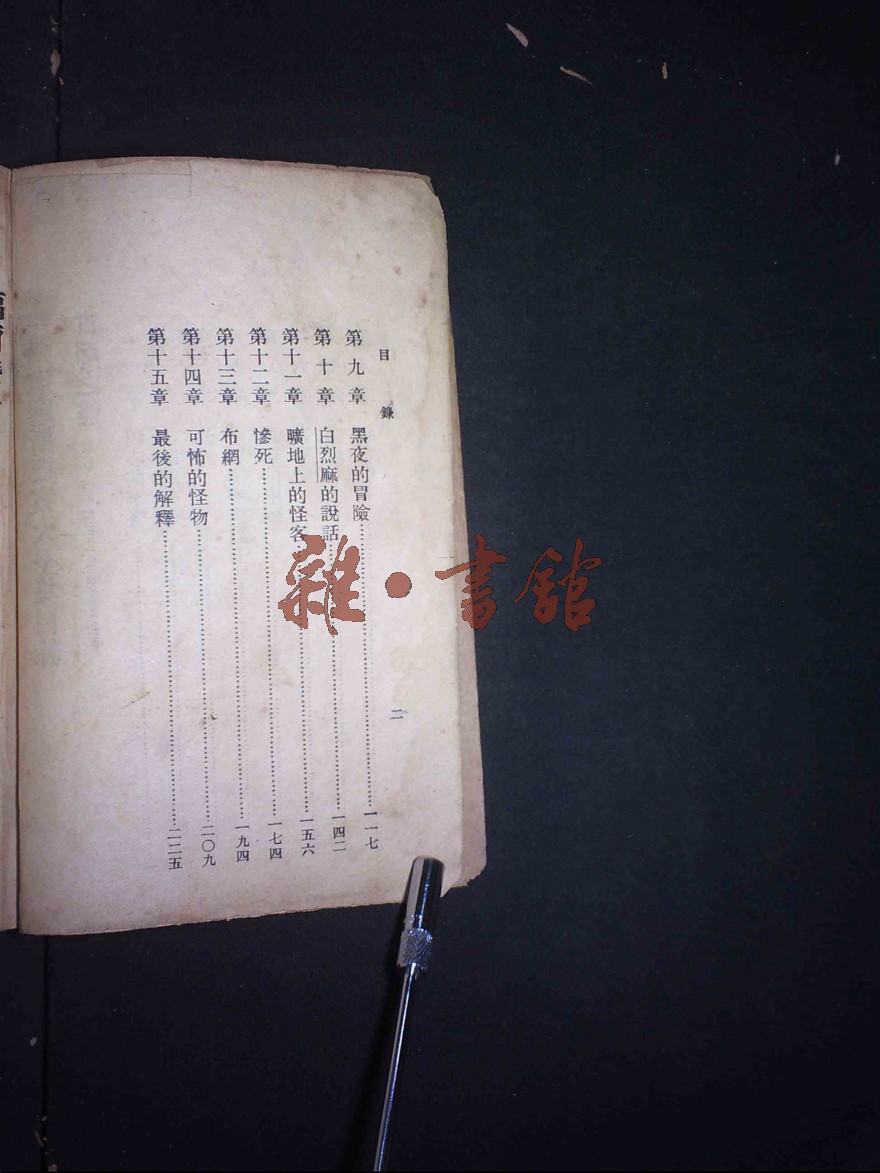 目錄
二
第九章 黑夜的冒險……一一七
第十章 白烈麻的說話……一四二
第十一章 曠地上的怪客……一五六
第十二章 慘死……一七四
第十三章 布網……一九四
第十四章 可怖的怪物……二〇九
第十五章 最後的解釋……二二五
雜·書館